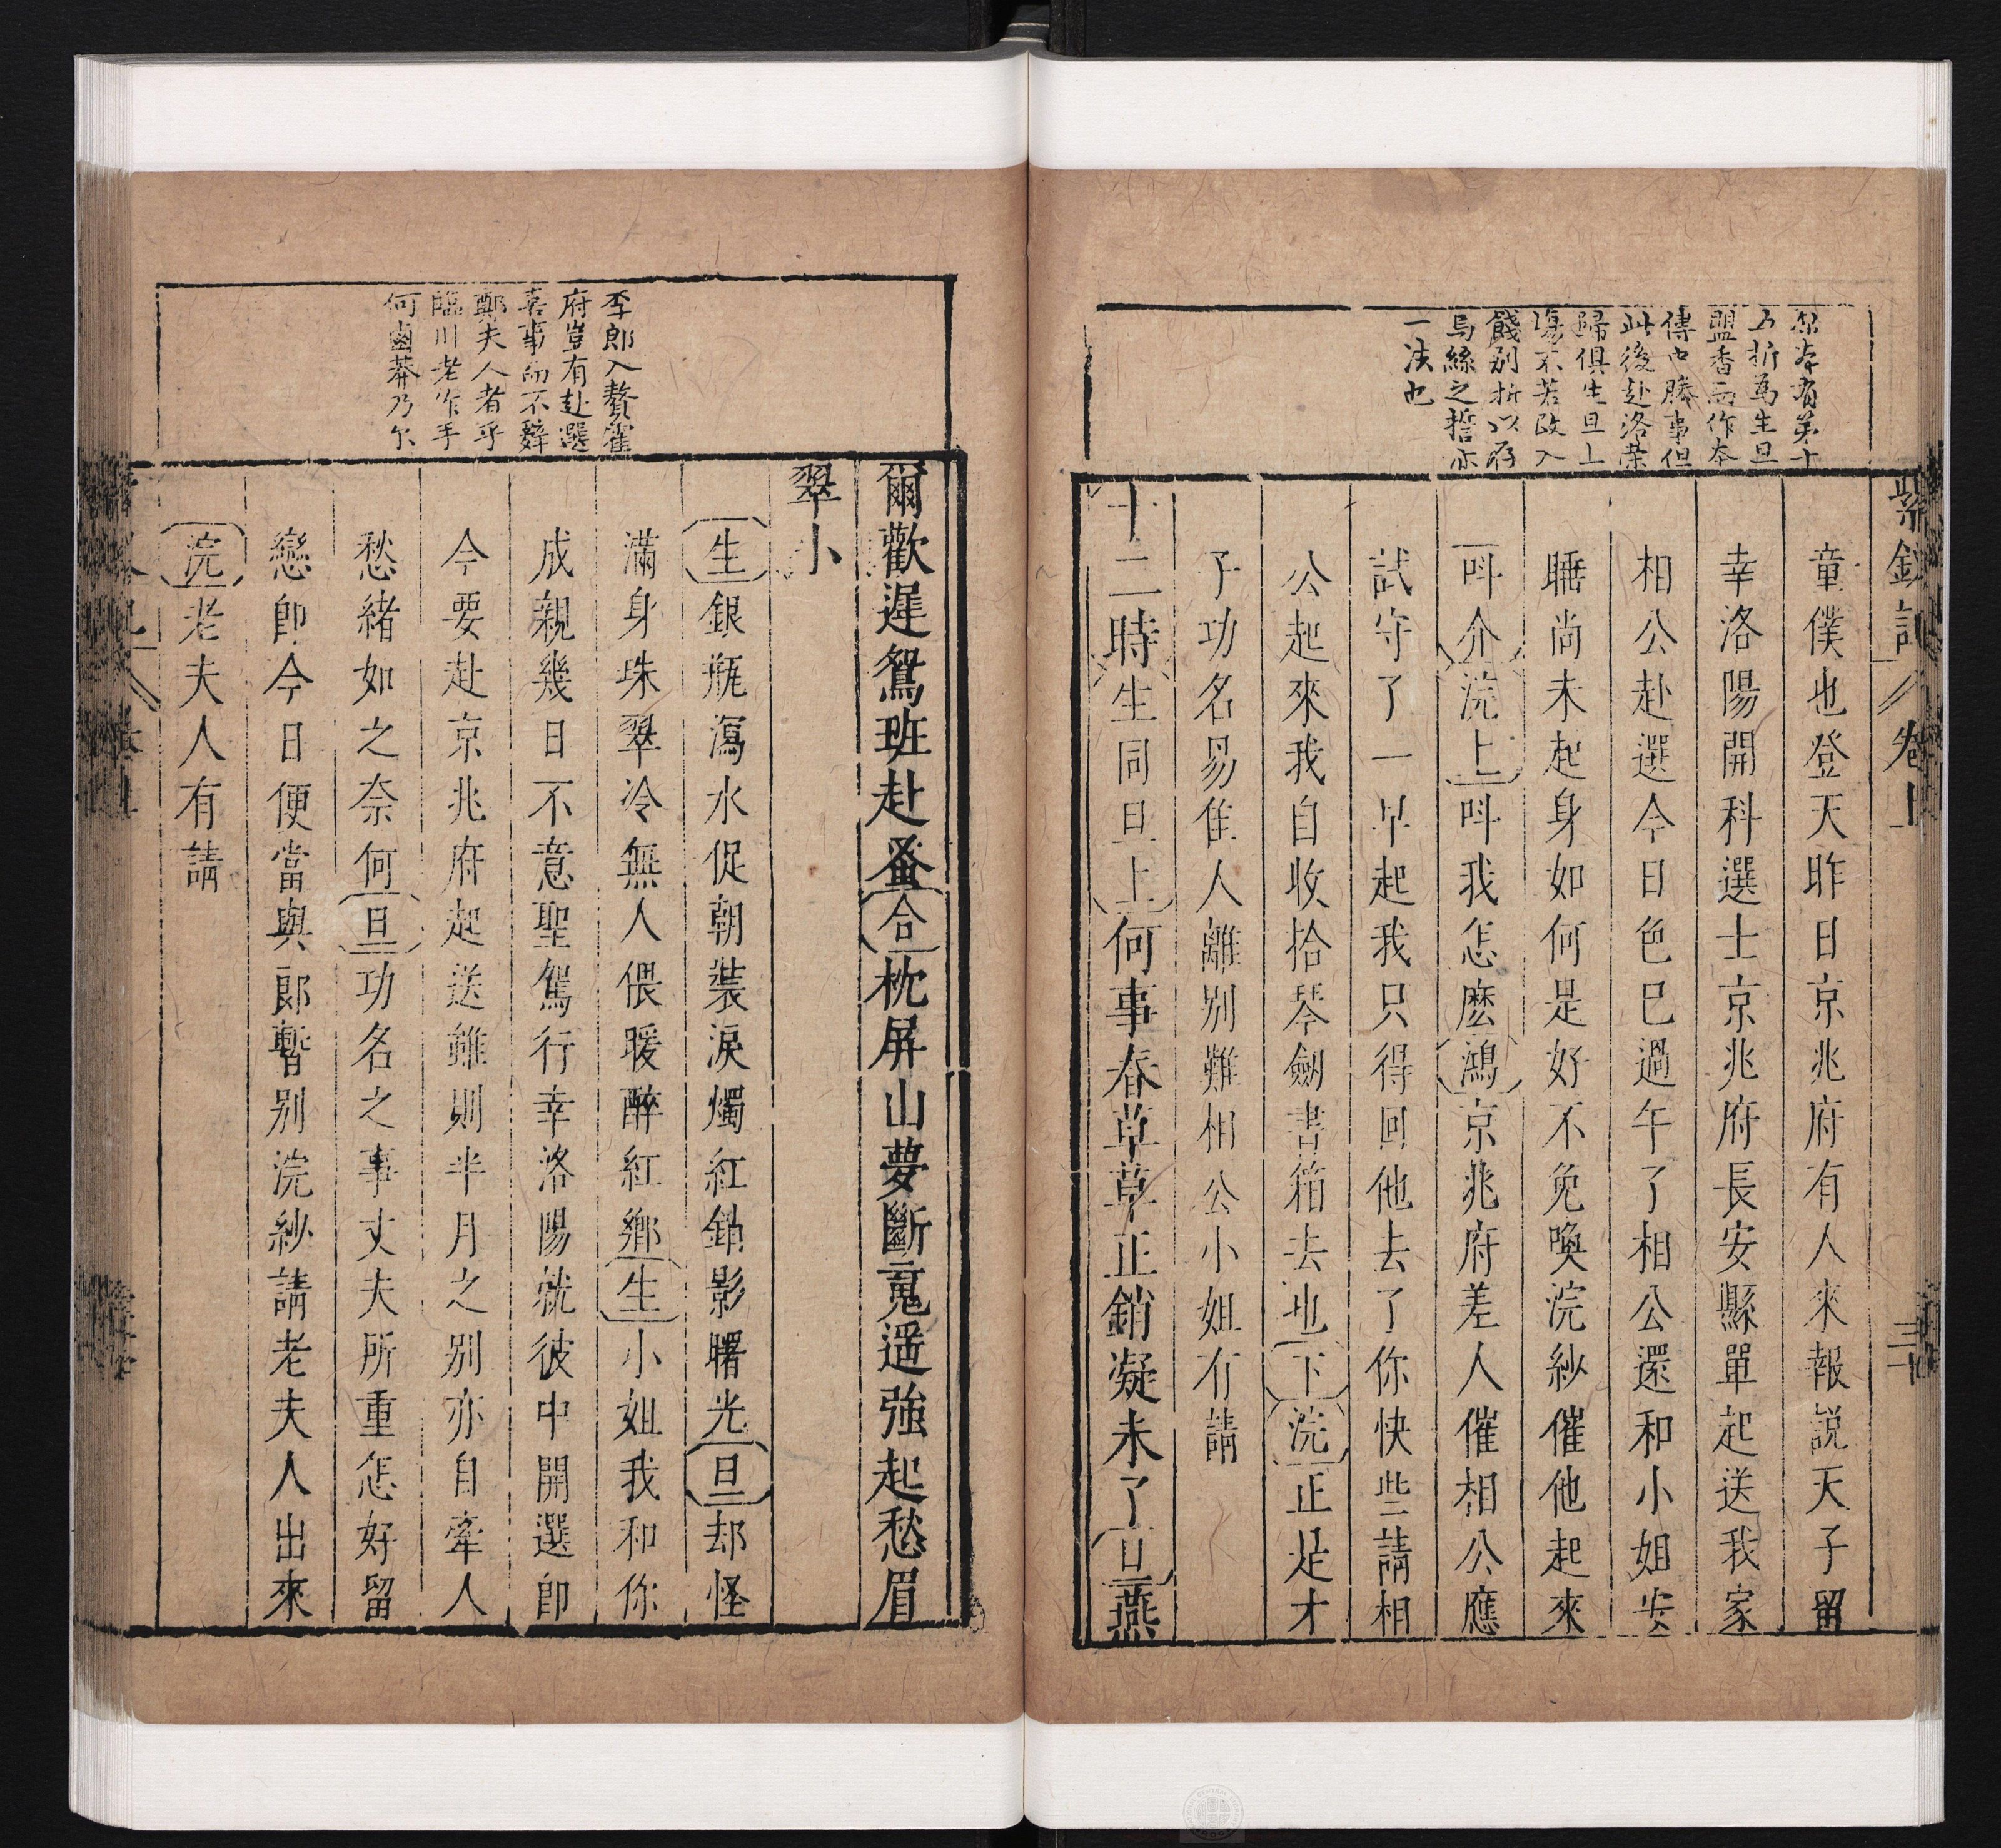 紫釵記
卷上
三十
原本有第十
五折為生旦
盟香而作本
傳中勝事但
此後赴洛榮
歸俱生旦上
場不若改入
餞別折以存
烏絲之誓亦
一法也
童僕也登天昨日京兆府有人來報説天子留
幸洛陽開科選士京兆府長安縣單起送我家
相公赴選今日色巳過午了相公還和小姐安
睡尚未起身如何是好不免喚浣紗催他起來
呌介浣上呌我怎麽鴻京兆府差人催相公應
試守了一早起我只得回他去了你快些請相
公起來我自收拾琴劒書箱去也下浣正是才
子功名易隹人離別難相公小姐有請
十二時生同旦上何事春草草正銷凝未了旦燕
李郎入贅霍
府豈有赴選
喜事而不辭
鄭夫人者乎
臨川老作手
何鹵莽乃尔
爾歡遲鴛班赴蚤合枕屏山夢斷䰟遥強起愁眉
翠小
生銀瓶瀉水促朝裝淚燭紅銷影曙光旦却怪
滿身珠翠冷無人偎暖醉紅鄉生小姐我和你
成親幾日不意聖駕行幸洛陽就彼中開選即
今要赴京兆府起送雖則半月之別亦自牽人
愁緒如之奈何旦功名之事丈夫所重怎好留
戀即今日便當與郎暫别浣紗請老夫人出來
浣老夫人有請